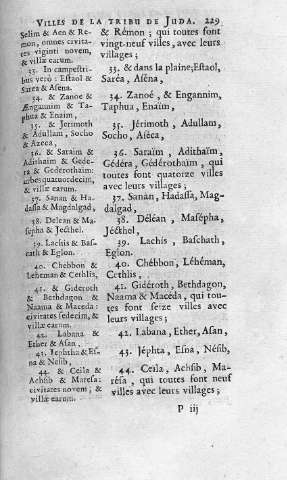 VILLES DE LA TRIBU DE JUDA. 229
Selim & Aen & Re-
mon, omnes civita-
tes viginti novem,
& villæ earum.
33. In campestri-
bus verò : Estaol &
Sarea & Asena,
34. & Zanoë &
Ængannim & Ta-
phua & Enaim,
35. & Jerimoth
& Adullam, Socho
& Azeca,
36. & Saraïm &
Adithaïm & Gede-
ra & Gederothaïm:
urbes quatuordecim,
& villæ earum.
37. Sanan & Ha-
dassa & Magdalgad,
38. Delean & Ma-
sepha & Jecthel.
39. Lachis & Bas-
cath & Eglon.
40. Chebbon &
Lehéman & Cethlis,
41. & Gideroth
& Bethdagon &
Naama & Maceda:
civitates sedecim, &
villæ earum.
42. Labana &
Ether & Asan,
43. Jephtha & Es-
na & Nesib,
44. & Ceila &
Achsib & Maresa:
civitates novem, &
villæ earum.
& Rémon ; qui toutes font
vingt-neuf villes, avec leurs
villages ;
33. & dans la plaine; Estaol,
Saréa, Aséna,
34. Zanoé, & Engannim,
Taphua, Enaïm,
35. Jérimoth, Adullam,
Socho, Aséca,
36. Saraïm, Adithaïm,
Gédéra, Gédérothaïm, qui
toutes font quatorze villes
avec leurs villages ;
37. Sanan, Hadassa, Mag-
dalgad,
38. Deléan, Masépha,
Jecthel,
39. Lachis, Bascath,
Eglon.
40. Chébbon, Léhéman,
Cethlis,
41. Gidéroth, Bethdagon,
Naama & Maceda, qui tou-
tes font seize villes avec
leurs villages ;
42. Labana, Ether, Asan,
43. Jéphta, Esna, Nésib,
44. Ceila, Achsib, Ma-
résa, qui toutes font neuf
villes avec leurs villages ;
P iij